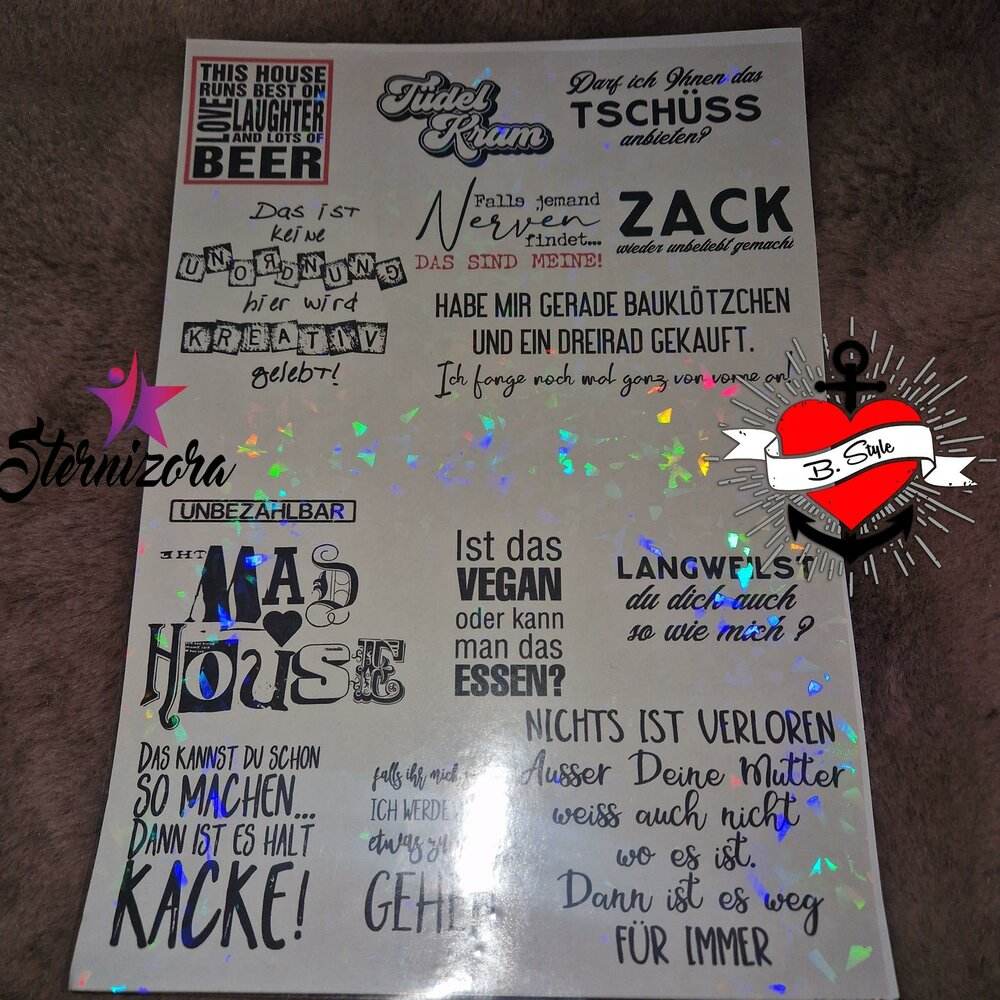 THIS HOUSE
RUNS BEST ON
LOVE
LAUGHTER
AND LOTS OF
BEER
Tüdel
Kram
Darf ich Ihnen das
TSCHÜSS
anbieten?
Das ist
keine
UNORDNUNG
hier wird
KREATIV
gelebt!
Falls jemand
Nerven
findet...
DAS SIND MEINE!
ZACK
wieder unbeliebt gemacht
HABE MIR GERADE BAUKLÖTZCHEN
UND EIN DREIRAD GEKAUFT.
Ich fange noch mal ganz von vorne an!
Sternizora
B. Style
UNBEZAHLBAR
THE
MAD
HOUSE
Ist das
VEGAN
oder kann
man das
ESSEN?
LANGWEILST
du dich auch
so wie mich ?
DAS KANNST DU SCHON
SO MACHEN...
DANN IST ES HALT
KACKE!
falls ihr mich
ICH WERDE
etwas
GEHEN
NICHTS IST VERLOREN
Ausser Deine Mutter
weiss auch nicht
wo es ist.
Dann ist es weg
FÜR IMMER